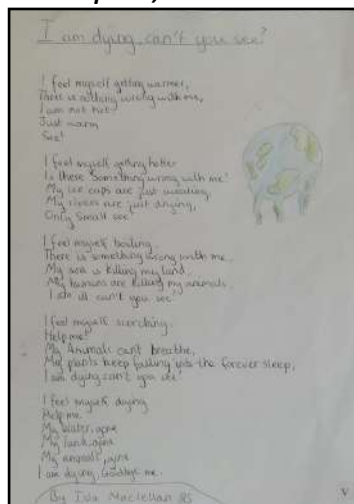 I am dying, can't you see?
I feel myself getting warmer,
There is nothing wrong with me,
I am not hot
Just warm
See!
I feel myself getting hotter
Is there something wrong with me?
My ice caps are just sweating,
My rivers are just drying,
Only small see
I feel myself boiling.
There is something wrong with me.
My sea is killing my land
My humans are killing my animals,
I am ill can't you see
I feel myself scorching.
Help me!
My Animals can't breathe,
My plants keep falling into the forever sleep,
I am dying can't you see!
I feel myself dying
Help me
My water, gone
My land, gone
My animals, gone
I am dying, Goodbye me.
By Isla Maclellan